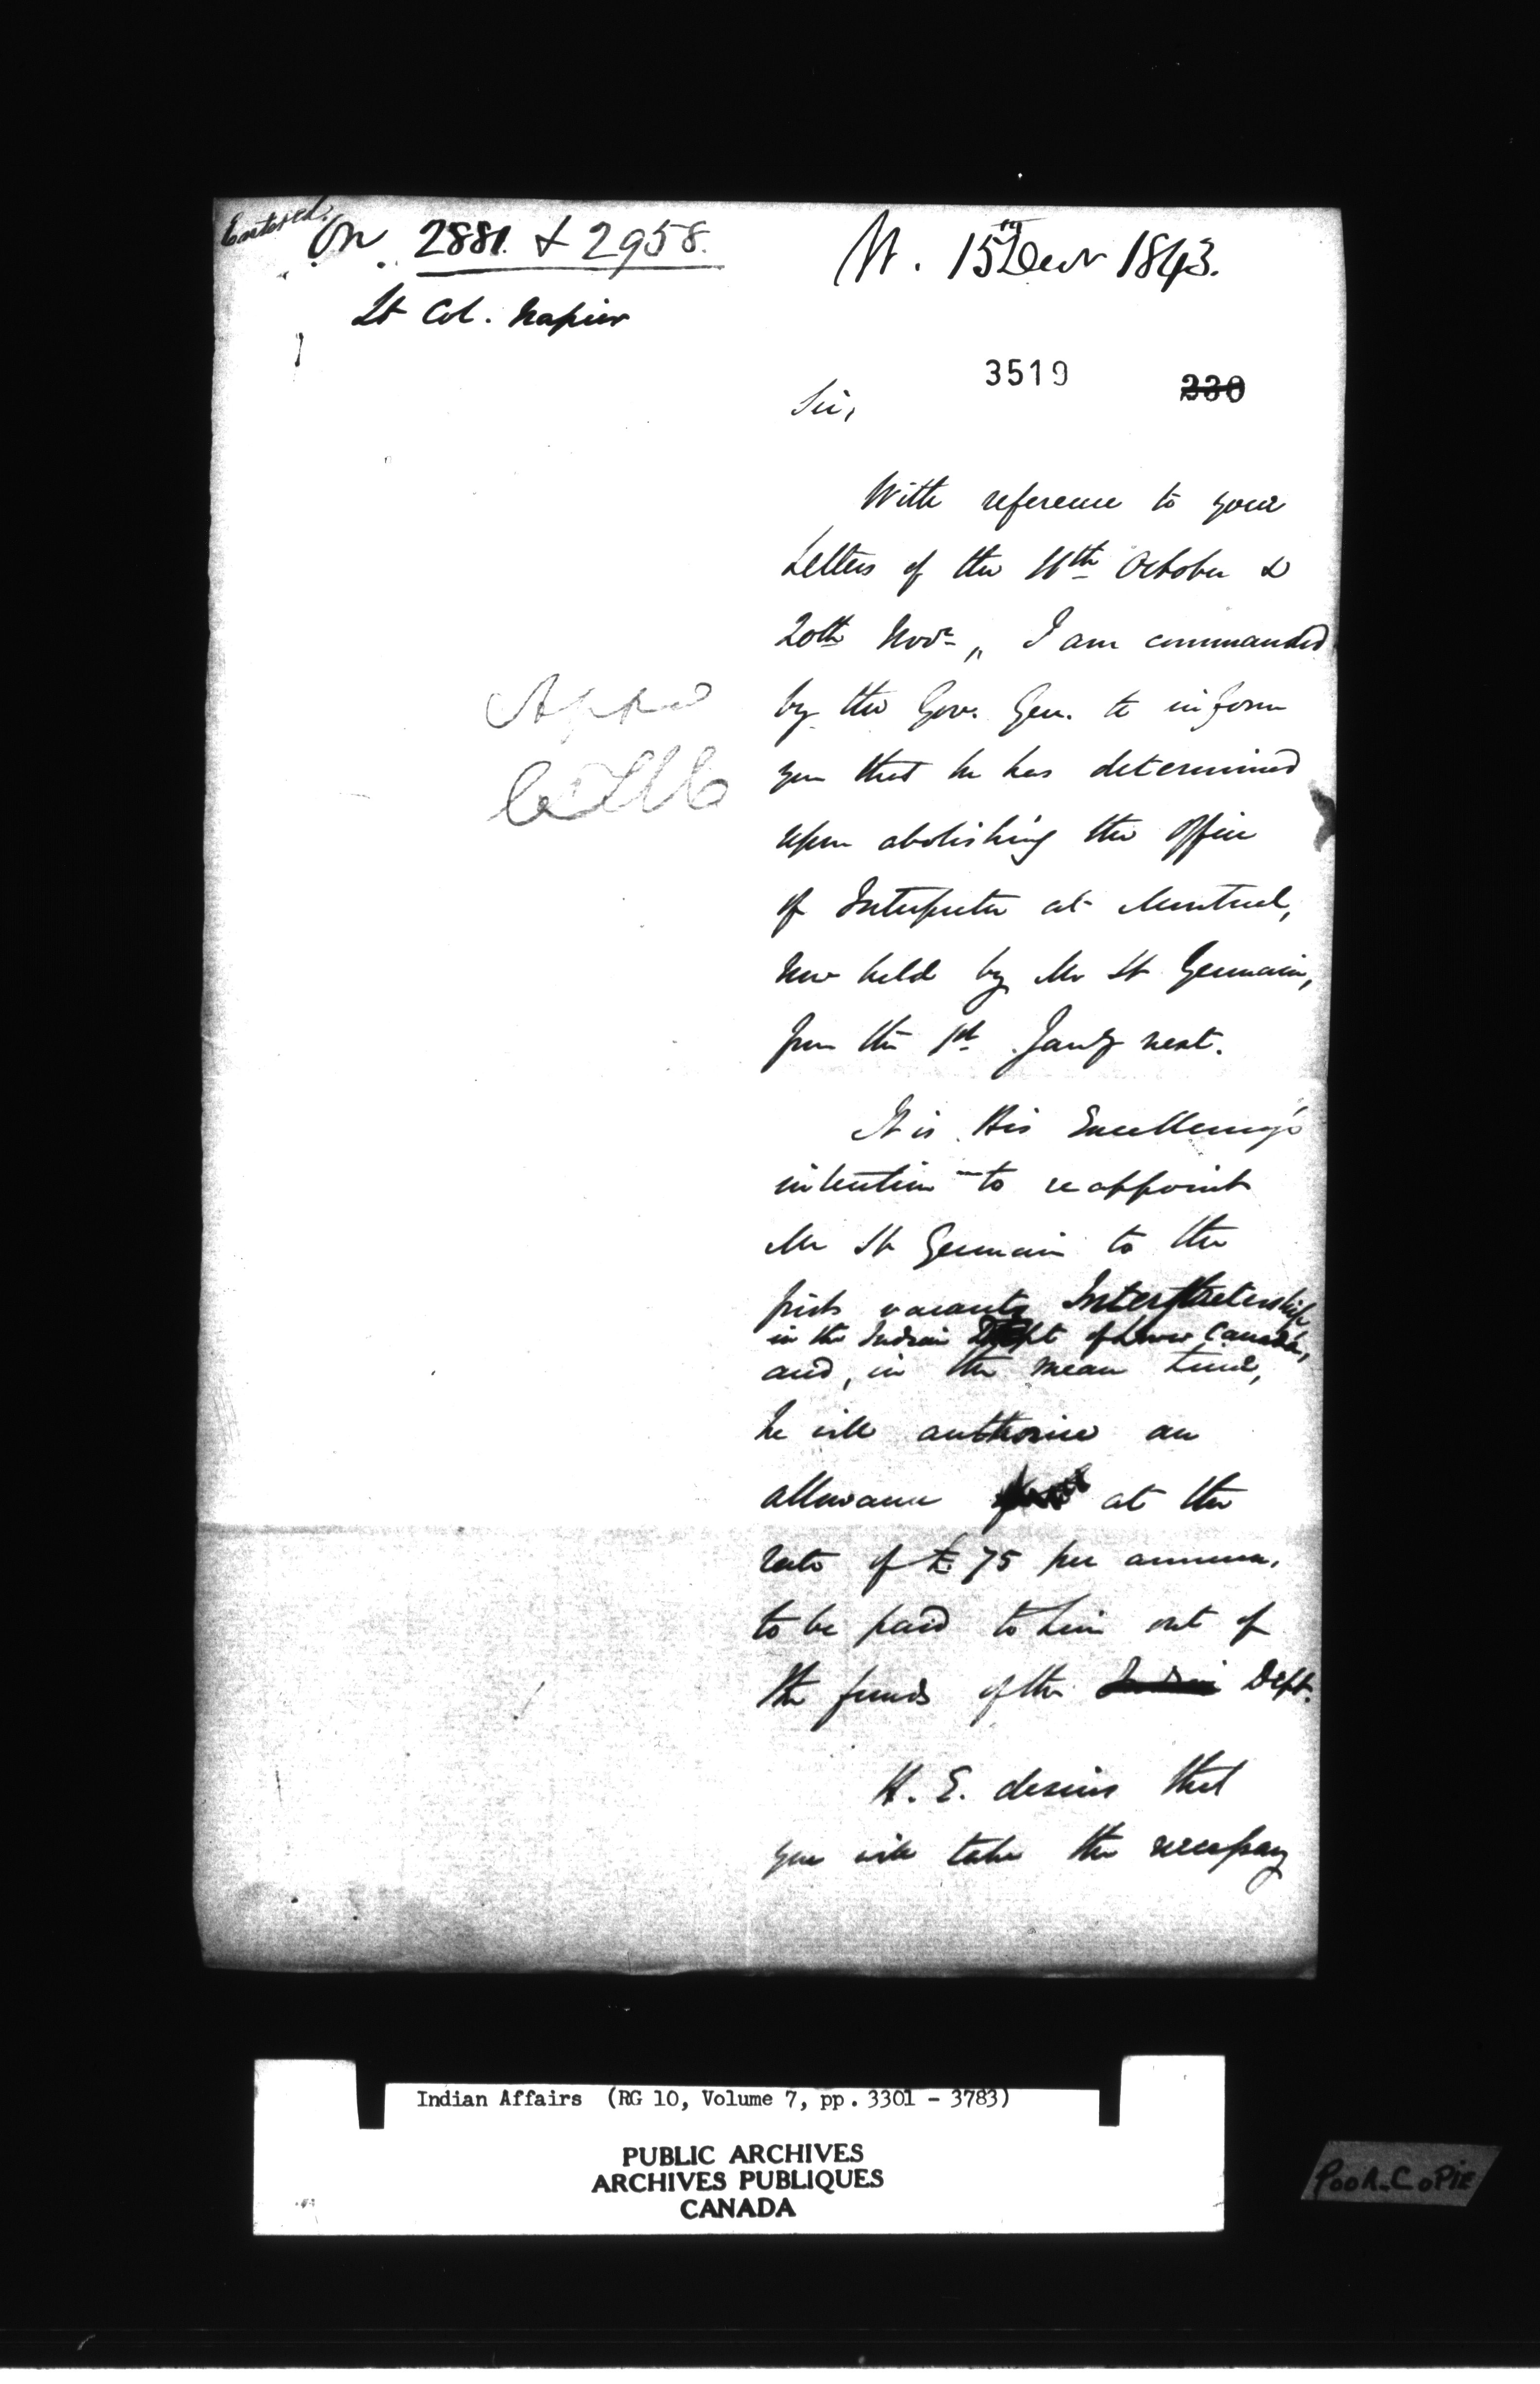 Entered.
On 2881. & 2958.
M. 15th Decr 1843.
Lt Col. Napier
3519
230
Sir,
With reference to your
Letters of the 11th October &
20th Novr., I am commanded
by the Gov. Gen. to inform
you that he has determined
upon abolishing the office
of Interpreter at Montreal,
now held by Mr St Germain,
from the 1st Jany next.
It is His Excellency's
intention to reappoint
Mr St Germain to the
first vacant Interpretership
in the Indian Dept of Lower Canada,
and, in the mean time,
he will authorise an
allowance at the
rate of £75 per annum,
to be paid to him out of
the funds of the Indian Dept.
H. E. desires that
you will take the necessary
Appd
Indian Affairs (RG 10, Volume 7, pp. 3301 - 3783)
PUBLIC ARCHIVES
ARCHIVES PUBLIQUES
CANADA
POOR COPIE